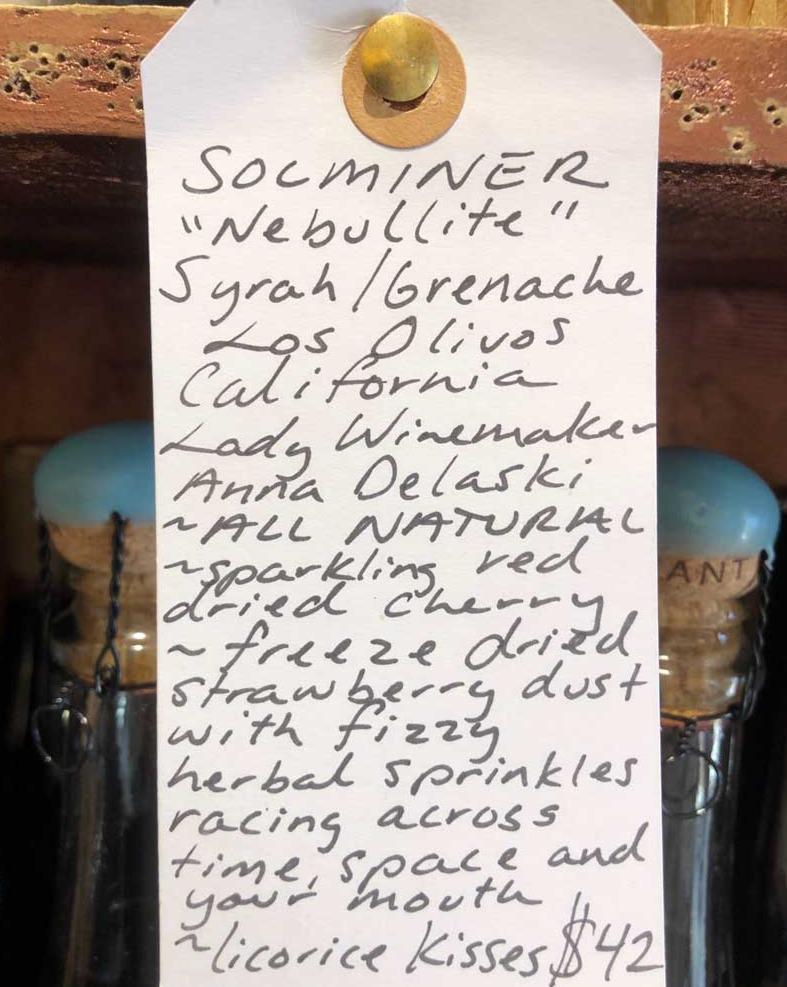 SOLMINER
"Nebullite"
Syrah/Grenache
Los Olivos
California
Lady Winemaker
Anna Delaski
~ALL NATURAL
~sparkling red
dried cherry
~freeze dried
strawberry dust
with fizzy
herbal sprinkles
racing across
time, space and
your mouth
~licorice kisses $42
ANT